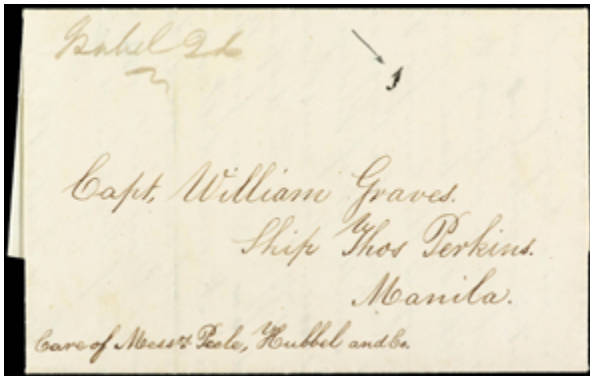 Isabel 2d
1
Capt, William Graves.
Ship Thos Perkins.
Manila.
Care of Mess.rs Peele, Hubbel and Co.